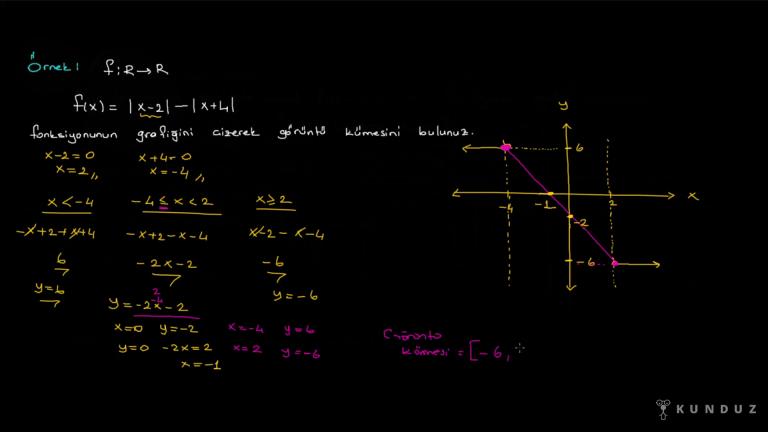 Örnek: f: R → R
f(x) = |x-2| - |x+4|
fonksiyonunun grafiğini çizerek görüntü kümesini bulunuz.
x-2=0 x+4=0
x=2,, x=-4,,
x<-4 -4≤x<2 x≥2
-x+2+x+4 -x+2-x-4 x-2-x-4
6 -2x-2 -6
y=6 y=-6
y=-2x-2
x=0 y=-2 x=-4 y=6
y=0 -2x=2 x=2 y=-6
x=-1
Görüntü
kümesi = [-6,
y
6
-4 -1 2 x
-2
-6
KUNDUZ